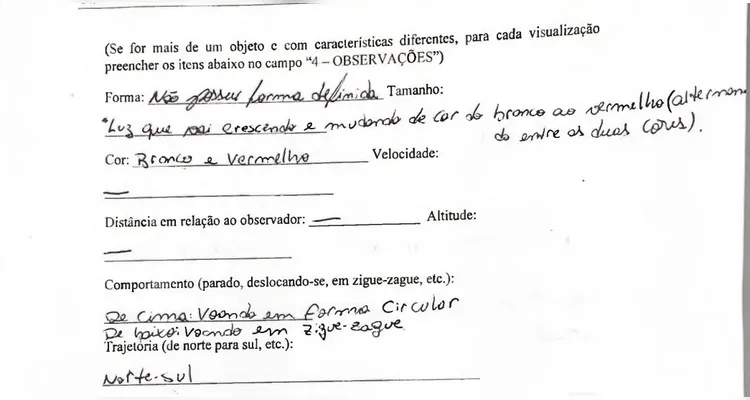 (Se for mais de um objeto e com características diferentes, para cada visualização
preencher os itens abaixo no campo “4 – OBSERVAÇÕES”)
Forma: Não possui forma definida Tamanho:
"Luz que vai crescendo e mudando de cor do branco ao vermelho (alternan
do entre as duas cores).
Cor: Branco e vermelho Velocidade:
—
Distância em relação ao observador: — Altitude:
—
Comportamento (parado, deslocando-se, em zigue-zague, etc.):
De cima: Voando em forma circular
De baixo: Voando em zigue-zague
Trajetória (de norte para sul, etc.):
Norte-sul